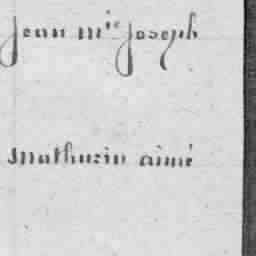 jean m.ie joseph
mathurin aimé